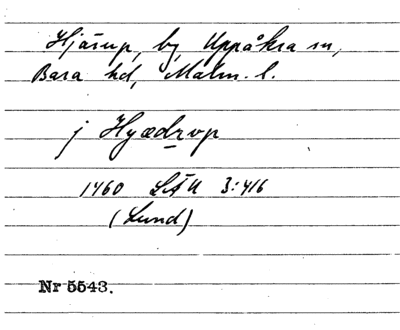 Hjärup, by, Uppåkra sn,
Bara hd, Malm. l.
j Hyædrop
1460 LÄU 3:416
(Lund)
Nr 5543.